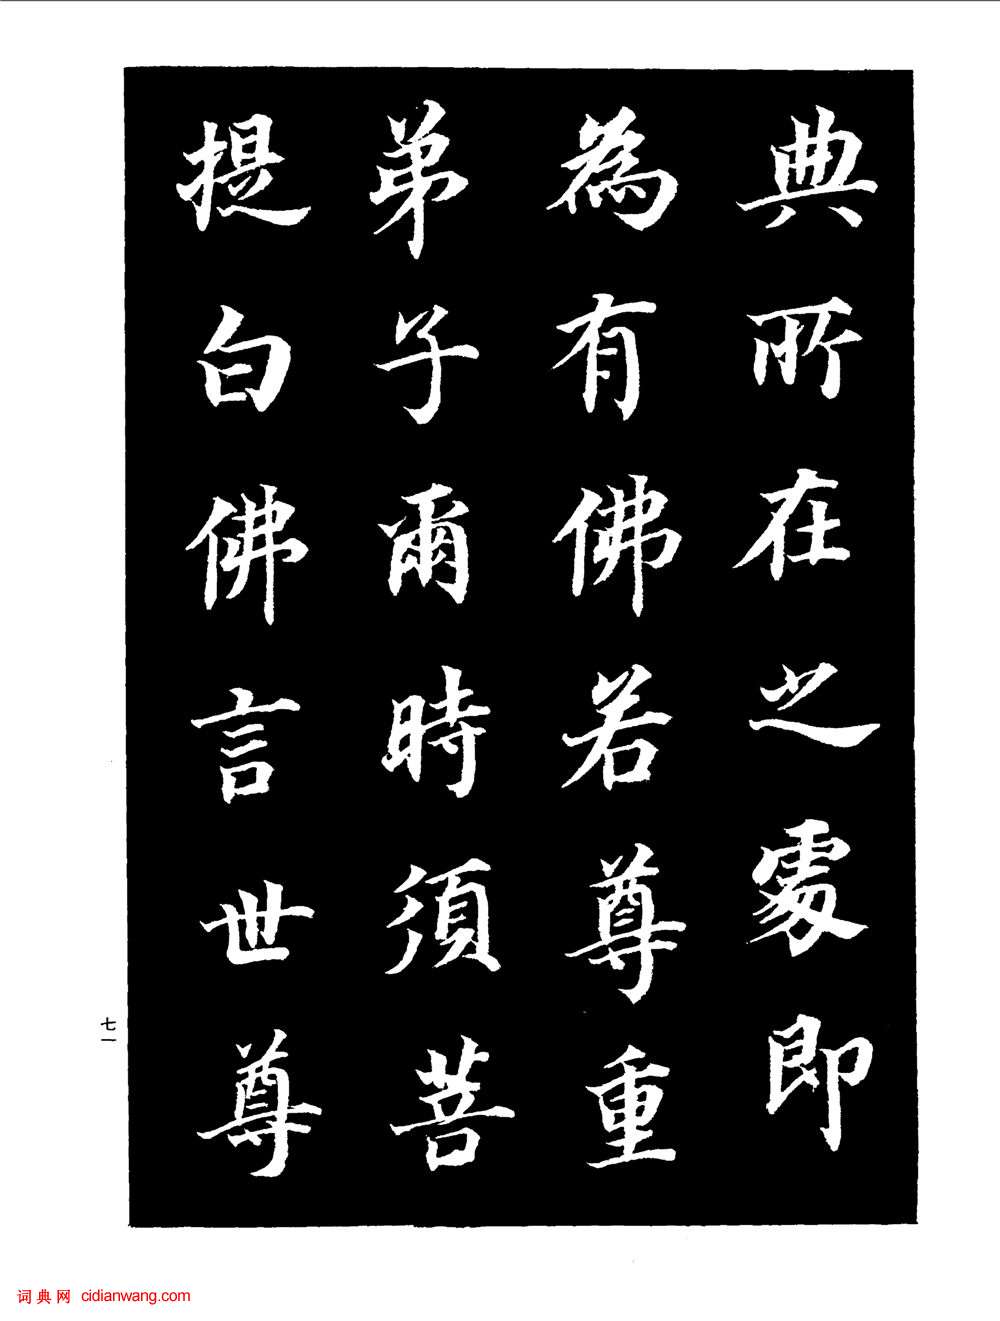 典所在之處即
為有佛若尊重
弟子爾時須菩
提白佛言世尊
七一
词典网 cidianwang.com